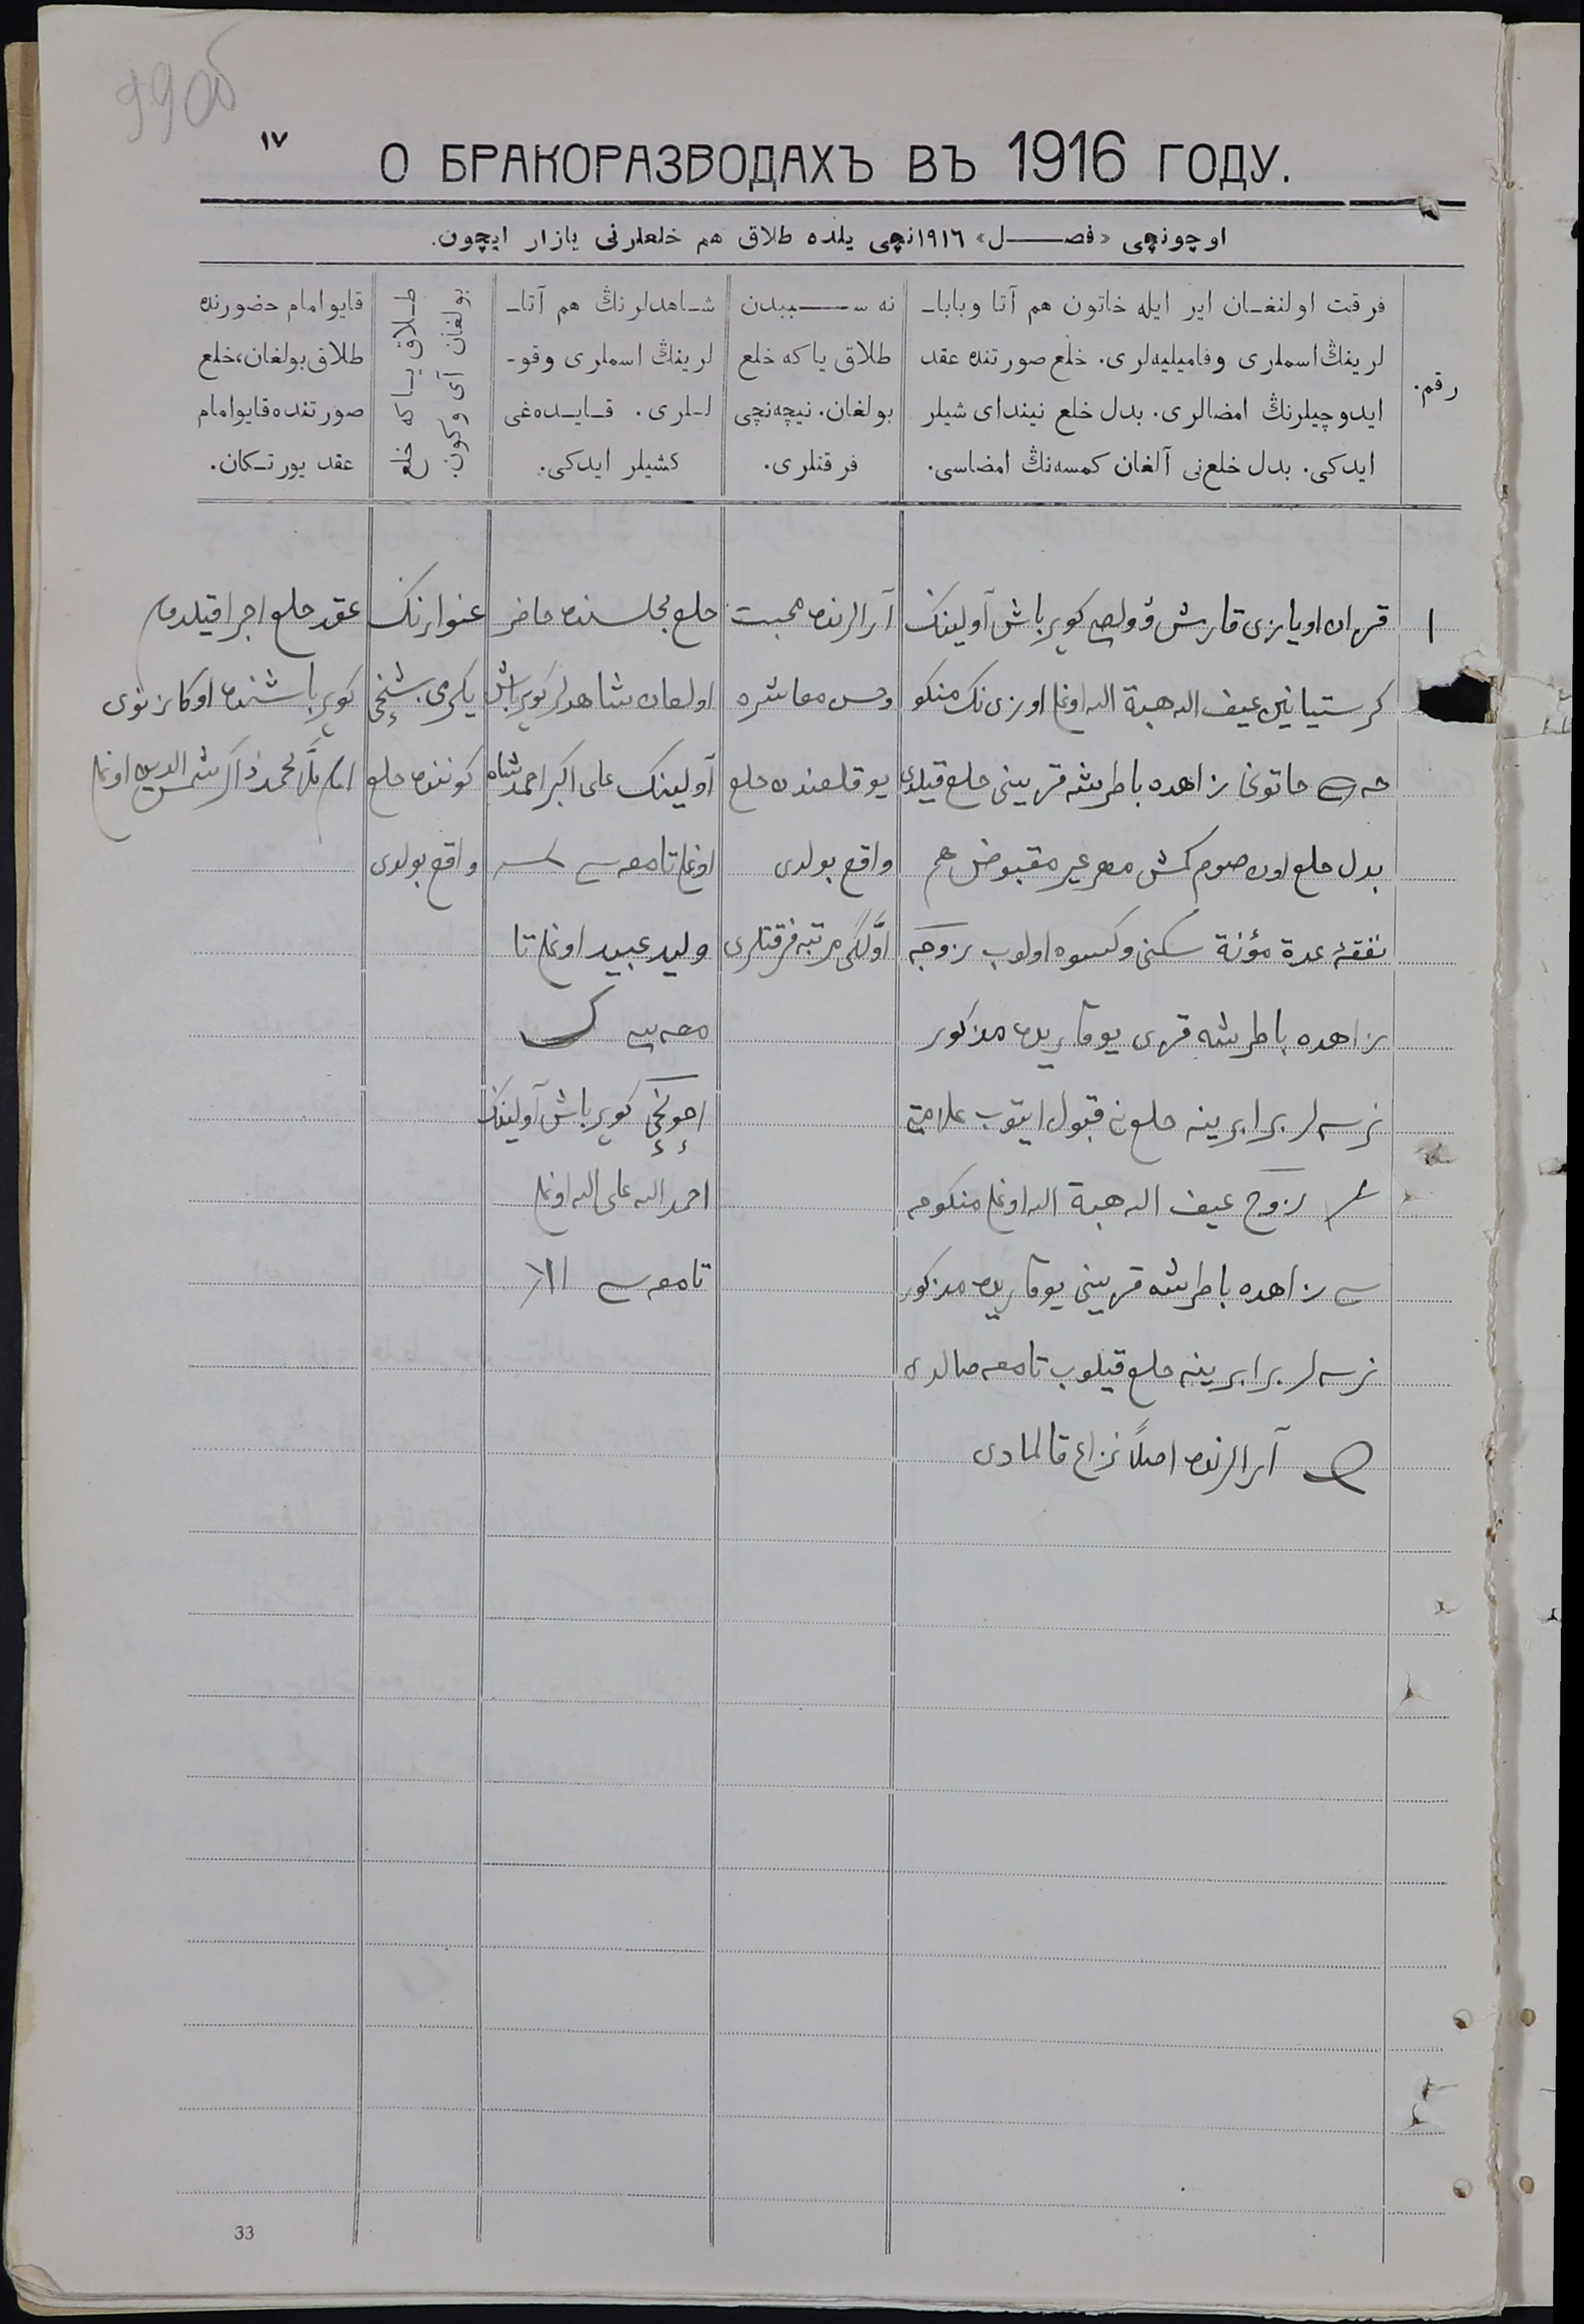 99об
١٧
О БРАКОРАЗВОДАХЪ ВЪ 1916 ГОДУ.
اوچونچی «فصـــــل» ١٩١٦نچی یلده طلاق هم خلعلرنی یازار ایچون.
رقم.
فرقت اولنغـان ایر ایله خاتون هم آتا وبابا-
لرینڭ اسملری وفامیلیه‌لری. خلع صورتنده عقد
ایدوچیلرنڭ امضالری. بدل خلع نیندای شیلر
ایدکی. بدل خلع‌نی آلغان کمسه‌نڭ امضاسی.
نه ســـببدن
طلاق یا که خلع
بولغان. نیچه‌نچی
فرقتلری.
شـاهدلرنڭ هم آتا-
لرینڭ اسملری وقو-
لـلری. قـایـده‌غی
کشیلر ایدکی.
طـلاق یـا که خلع
بولغان آی وکون.
قایو امام حضورنده
طلاق بولغان، خلع
صورتنده قایو امام
عقد یورتـکان.
١
قزان اویازی قارش ۇولص کویرباش آولینک
کرستیانین عیف الله هبة الله اوغلی اوزی نک منکو
حه سی خاتونی زاهده باطرشه قزینی خلع قیلدی
بدل خلع اون صوم کمش مهر غیر مقبوض هم
نفقۀ عدة مؤنة سکنی وکسوه اولوب زوجه
زاهده باطرشه قزی یوقاریده مذکور
نرسه لر برابرینه خلع نی قبول ایتوب علامتی
زوج عیف الله هبة الله اوغلی منکوحه
سی زاهده باطرشه قزینی یوقاریده مذکور
نرسه لر برابرینه خلع قیلوب تامغه صالدی
آرالرنده اصلاً نزاع قالمادی
آرالرنده محبت
وحسن معاشره
یوقلغندن خلع
واقع بولدی
اوّلگی مرتبه فرقتلری
خلع مجلسنده حاضر
اولغان شاهدلر کویرباش
آولینک علی اکبر احمدشاه
اوغلی تامغه سی
ولید عبید اوغلی تا
مغه سی
اچونچی کویرباش آولینک
احمدالله علی الله اوغلی
تامغه سی
غنوارنک
یکرمی بشنچی
کوننده خلع
واقع بولدی
عقد خلع اجرا قیلدم
کویرباشنده اوکازنوی
امام ملا محمد ذاکر شمس الدین اوغلی
33